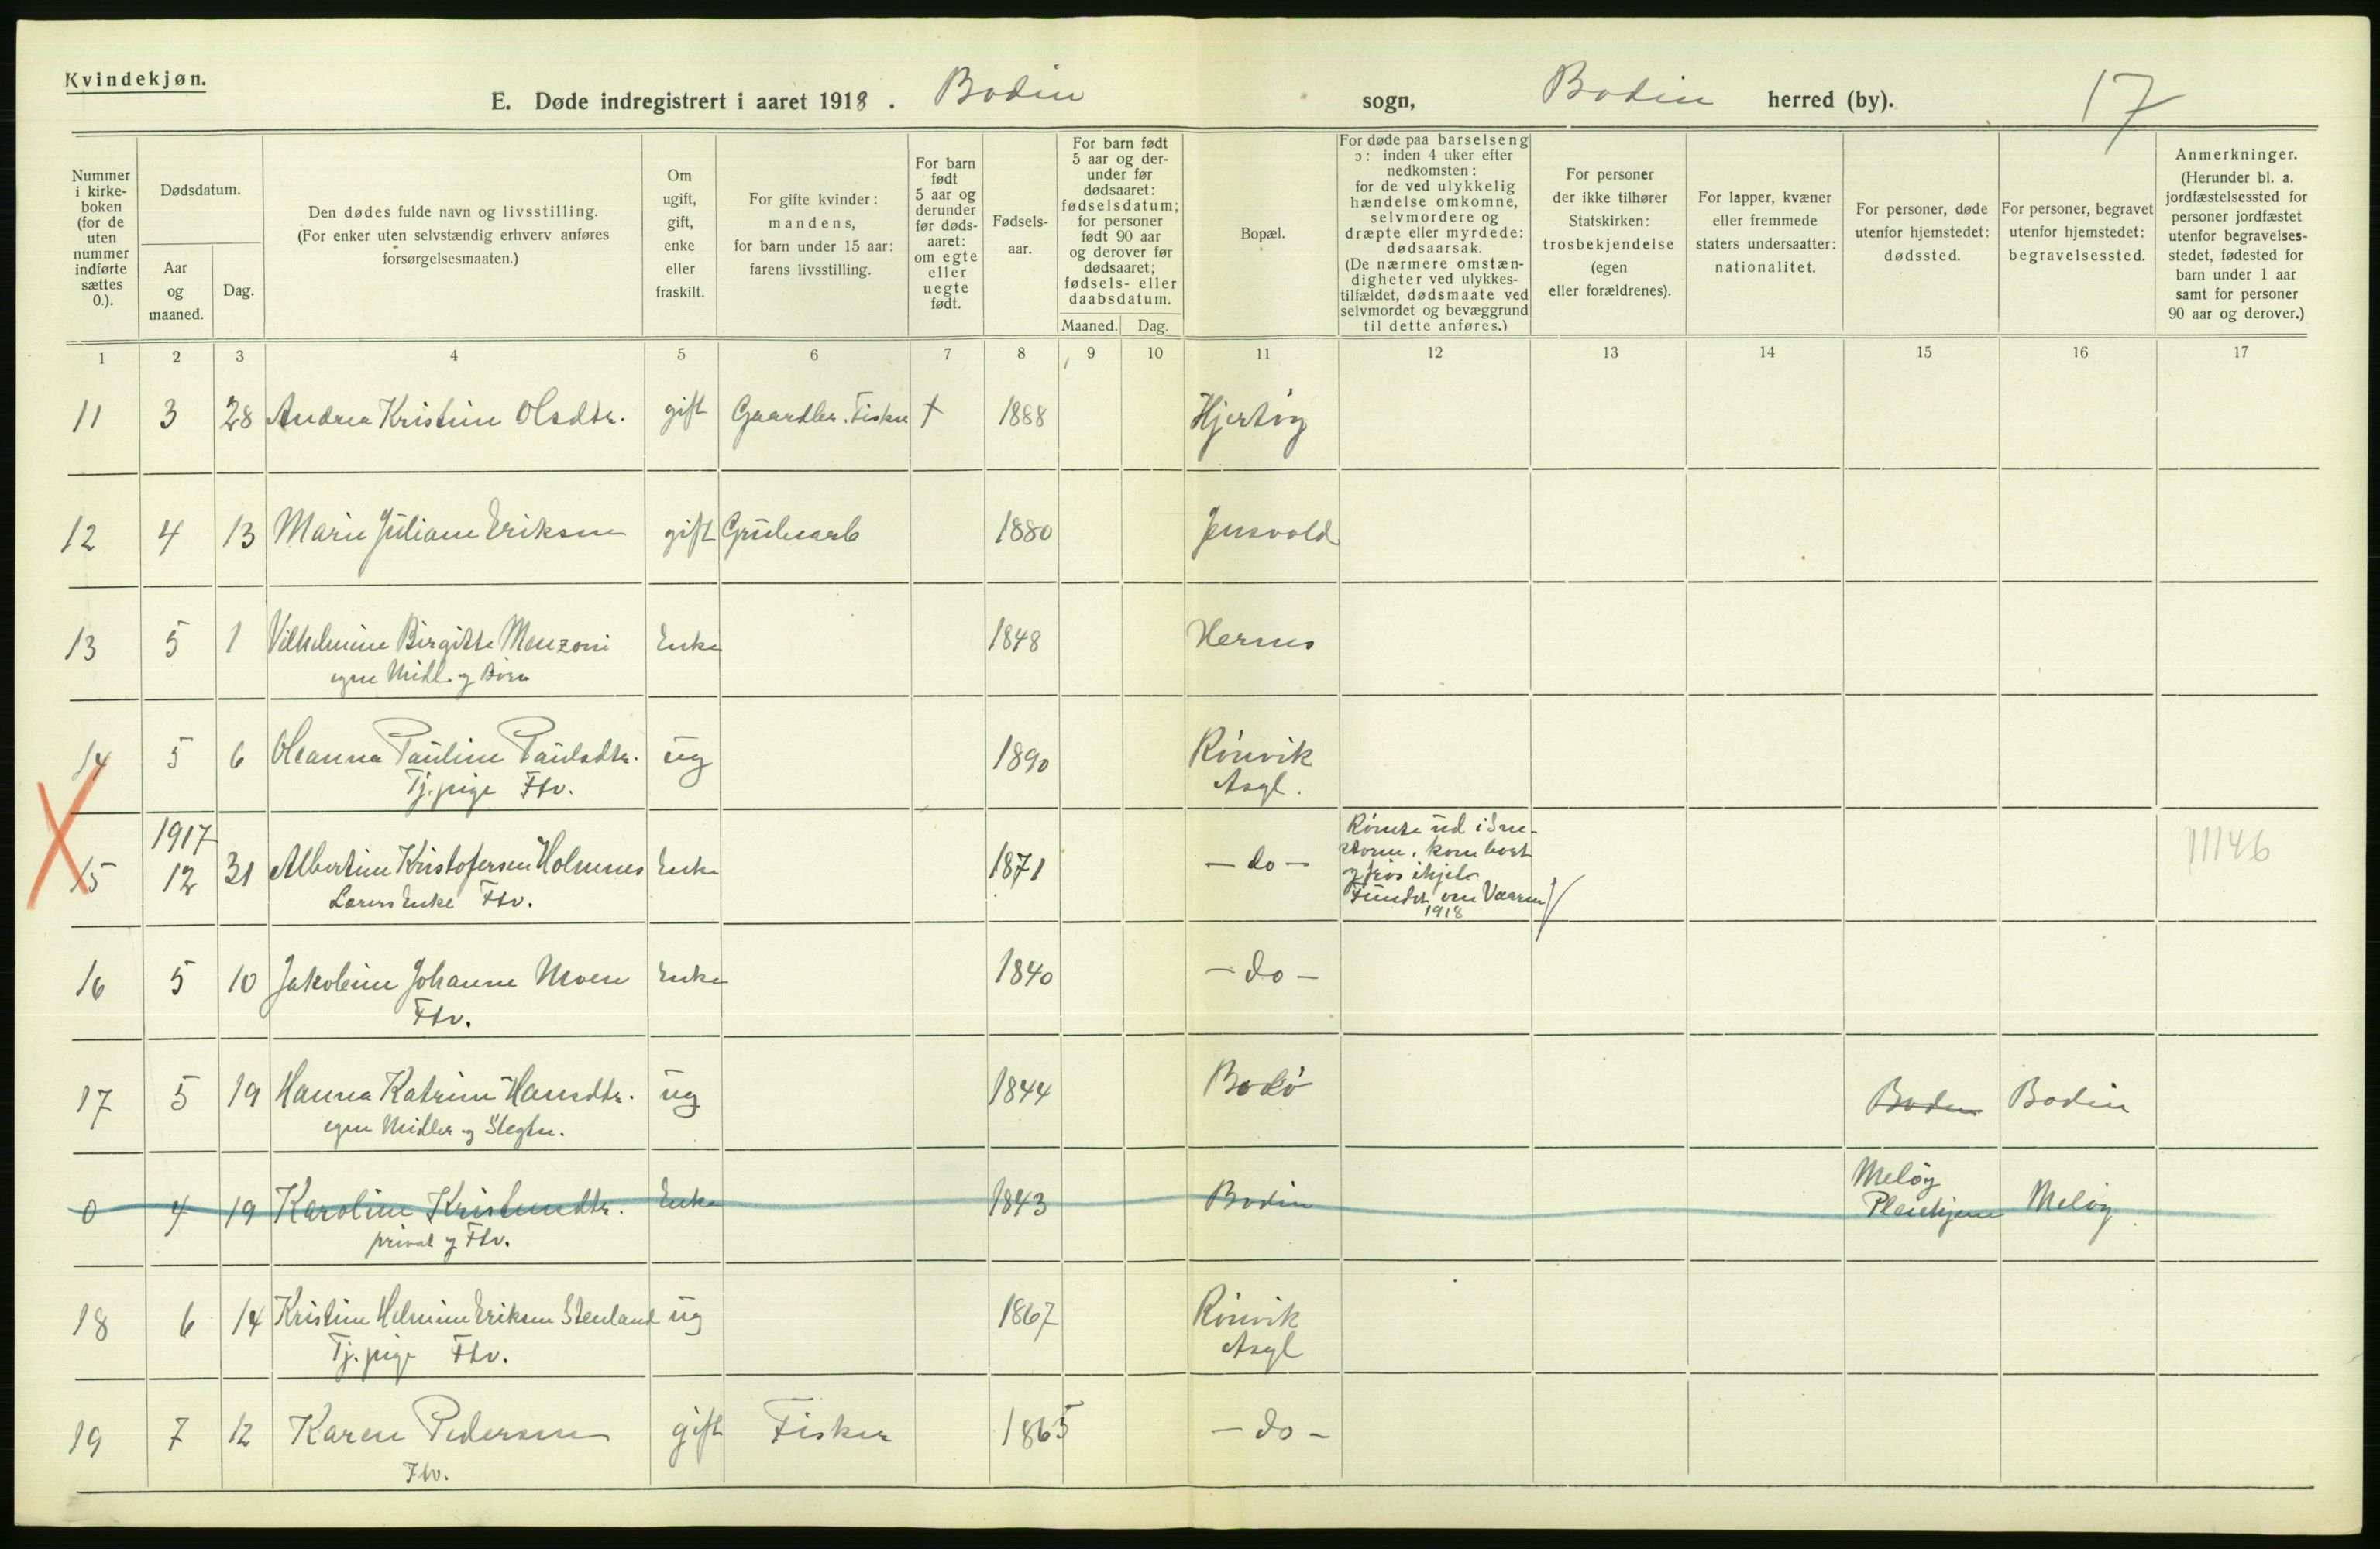 Kvindekjøn.
E. Døde indregistrert i aaret 1918. Bodin sogn, Bodin herred (by). 17
Nummer i kirkeboken (for de uten nummer indførte sættes 0.).
Dødsdatum.
Aar og maaned.
Dag.
Den dødes fulde navn og livsstilling.
(For enker uten selvstændig erhverv anføres forsørgelsesmaaten.)
Om ugift, gift, enke eller fraskilt.
For gifte kvinder: mandens, for barn under 15 aar: farens livsstilling.
For barn født 5 aar og derunder før dødsaaret: om egte eller uegte født.
Fødselsaar.
For barn født 5 aar og derunder før dødsaaret: fødselsdatum; for personer født 90 aar og derover før dødsaaret; fødsels- eller daabsdatum.
Maaned. Dag.
Bopæl.
For døde paa barselseng ɔ: inden 4 uker efter nedkomsten: for de ved ulykkelig hændelse omkomne, selvmordere og dræpte eller myrdede: dødsaarsak.
(De nærmere omstændigheter ved ulykkestilfældet, dødsmaate ved selvmordet og bevæggrund til dette anføres.)
For personer der ikke tilhører Statskirken: trosbekjendelse (egen eller forældrenes).
For lapper, kvæner eller fremmede staters undersaatter: nationalitet.
For personer, døde utenfor hjemstedet: dødssted.
For personer, begravet utenfor hjemstedet: begravelsessted.
Anmerkninger.
(Herunder bl. a. jordfæstelsessted for personer jordfæstet utenfor begravelsesstedet, fødested for barn under 1 aar samt for personer 90 aar og derover.)
1 2 3 4 5 6 7 8 9 10 11 12 13 14 15 16 17
11 3 28 Andrea Kristine Olsdtr. gift Gaardbr. Fisker + 1888 Hjertøy
12 4 13 Marie Juliane Eriksen gift Grubearb 1880 Jensvold
13 5 1 Vilhelmine Birgitte Menzoni Enke 1848 Hernes
egne Midl. og Børn
14 5 6 Oleanna Pauline Paulsdtr. ug 1890 Rønvik
Tj.pige Ftv. Asyl.
1917
15 12 31 Albertine Kristofersen Holmnes Enke 1871 - do - 11146
Lærers Enke Ftv.
Rømte ud i Sne-
storm, kom bort
og frøs ihjel.
Fundet om Vaaren
1918
16 5 10 Jakobine Johanne Moen Enke 1840 - do -
Ftv.
17 5 19 Hanna Katrine Hansdtr. ug 1844 Bodø Bodin Bodin
egne Midler og Slegtn.
0 4 19 Karoline Kristensdtr. Enke 1843 Bodin Meløy Pleiehjem Meløy
privat og Ftv.
18 6 14 Kristine Helmine Eriksen Stenland ug 1867 Rønvik
Tj.pige Ftv. Asyl
19 7 12 Karen Pedersen gift Fisker 1865 - do -
Ftv.